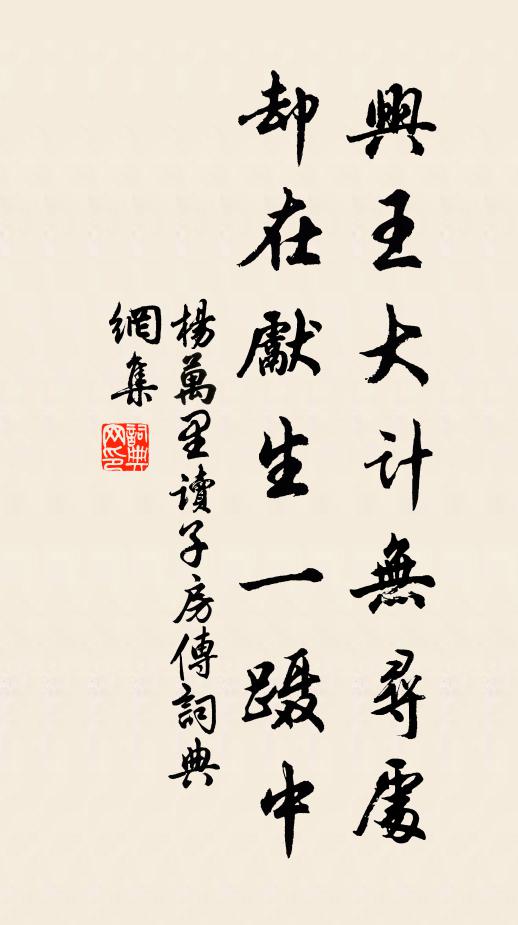 興王大計無尋處
却在獻生一蹑中
楊萬里讀子房傳詞典
網集
詞典
网印